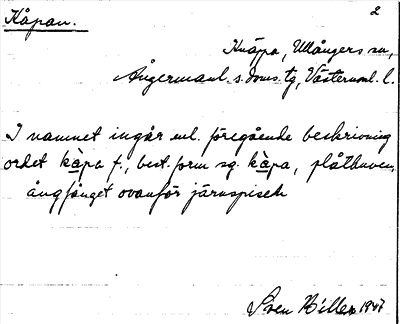 Kåpan.
2
Knäpa, Ullångers sn,
Ångermanl. s. doms. tg, Västernorrl. l.
I namnet ingår enl. föregående beskrivning
ordet kàpa f., best. form sg. kàpa, plåthuven,
ångfånget ovanför järnspiseln
Sven Hiller 1947